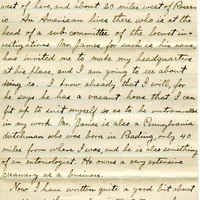 west of here, and about 20 miles west of Rosar-
io. An American lives there who is at the
head of a sub-committee of the locust in-
vestigations. Mr. James, for such is his name,
has invited me to make my headquarters
at his place, and I am going to see about
doing so. I know already that I will, for
he says he has a vacant house that I can
fit up to suit myself so as to be
in my work. Mr. James is also a Pennsylvania
dutchman who was born in Reading, only 40
miles from where I was, and he is also something
of an entomologist. He owns a very extensive
creamery as a business.
Now I have written quite a good bit about